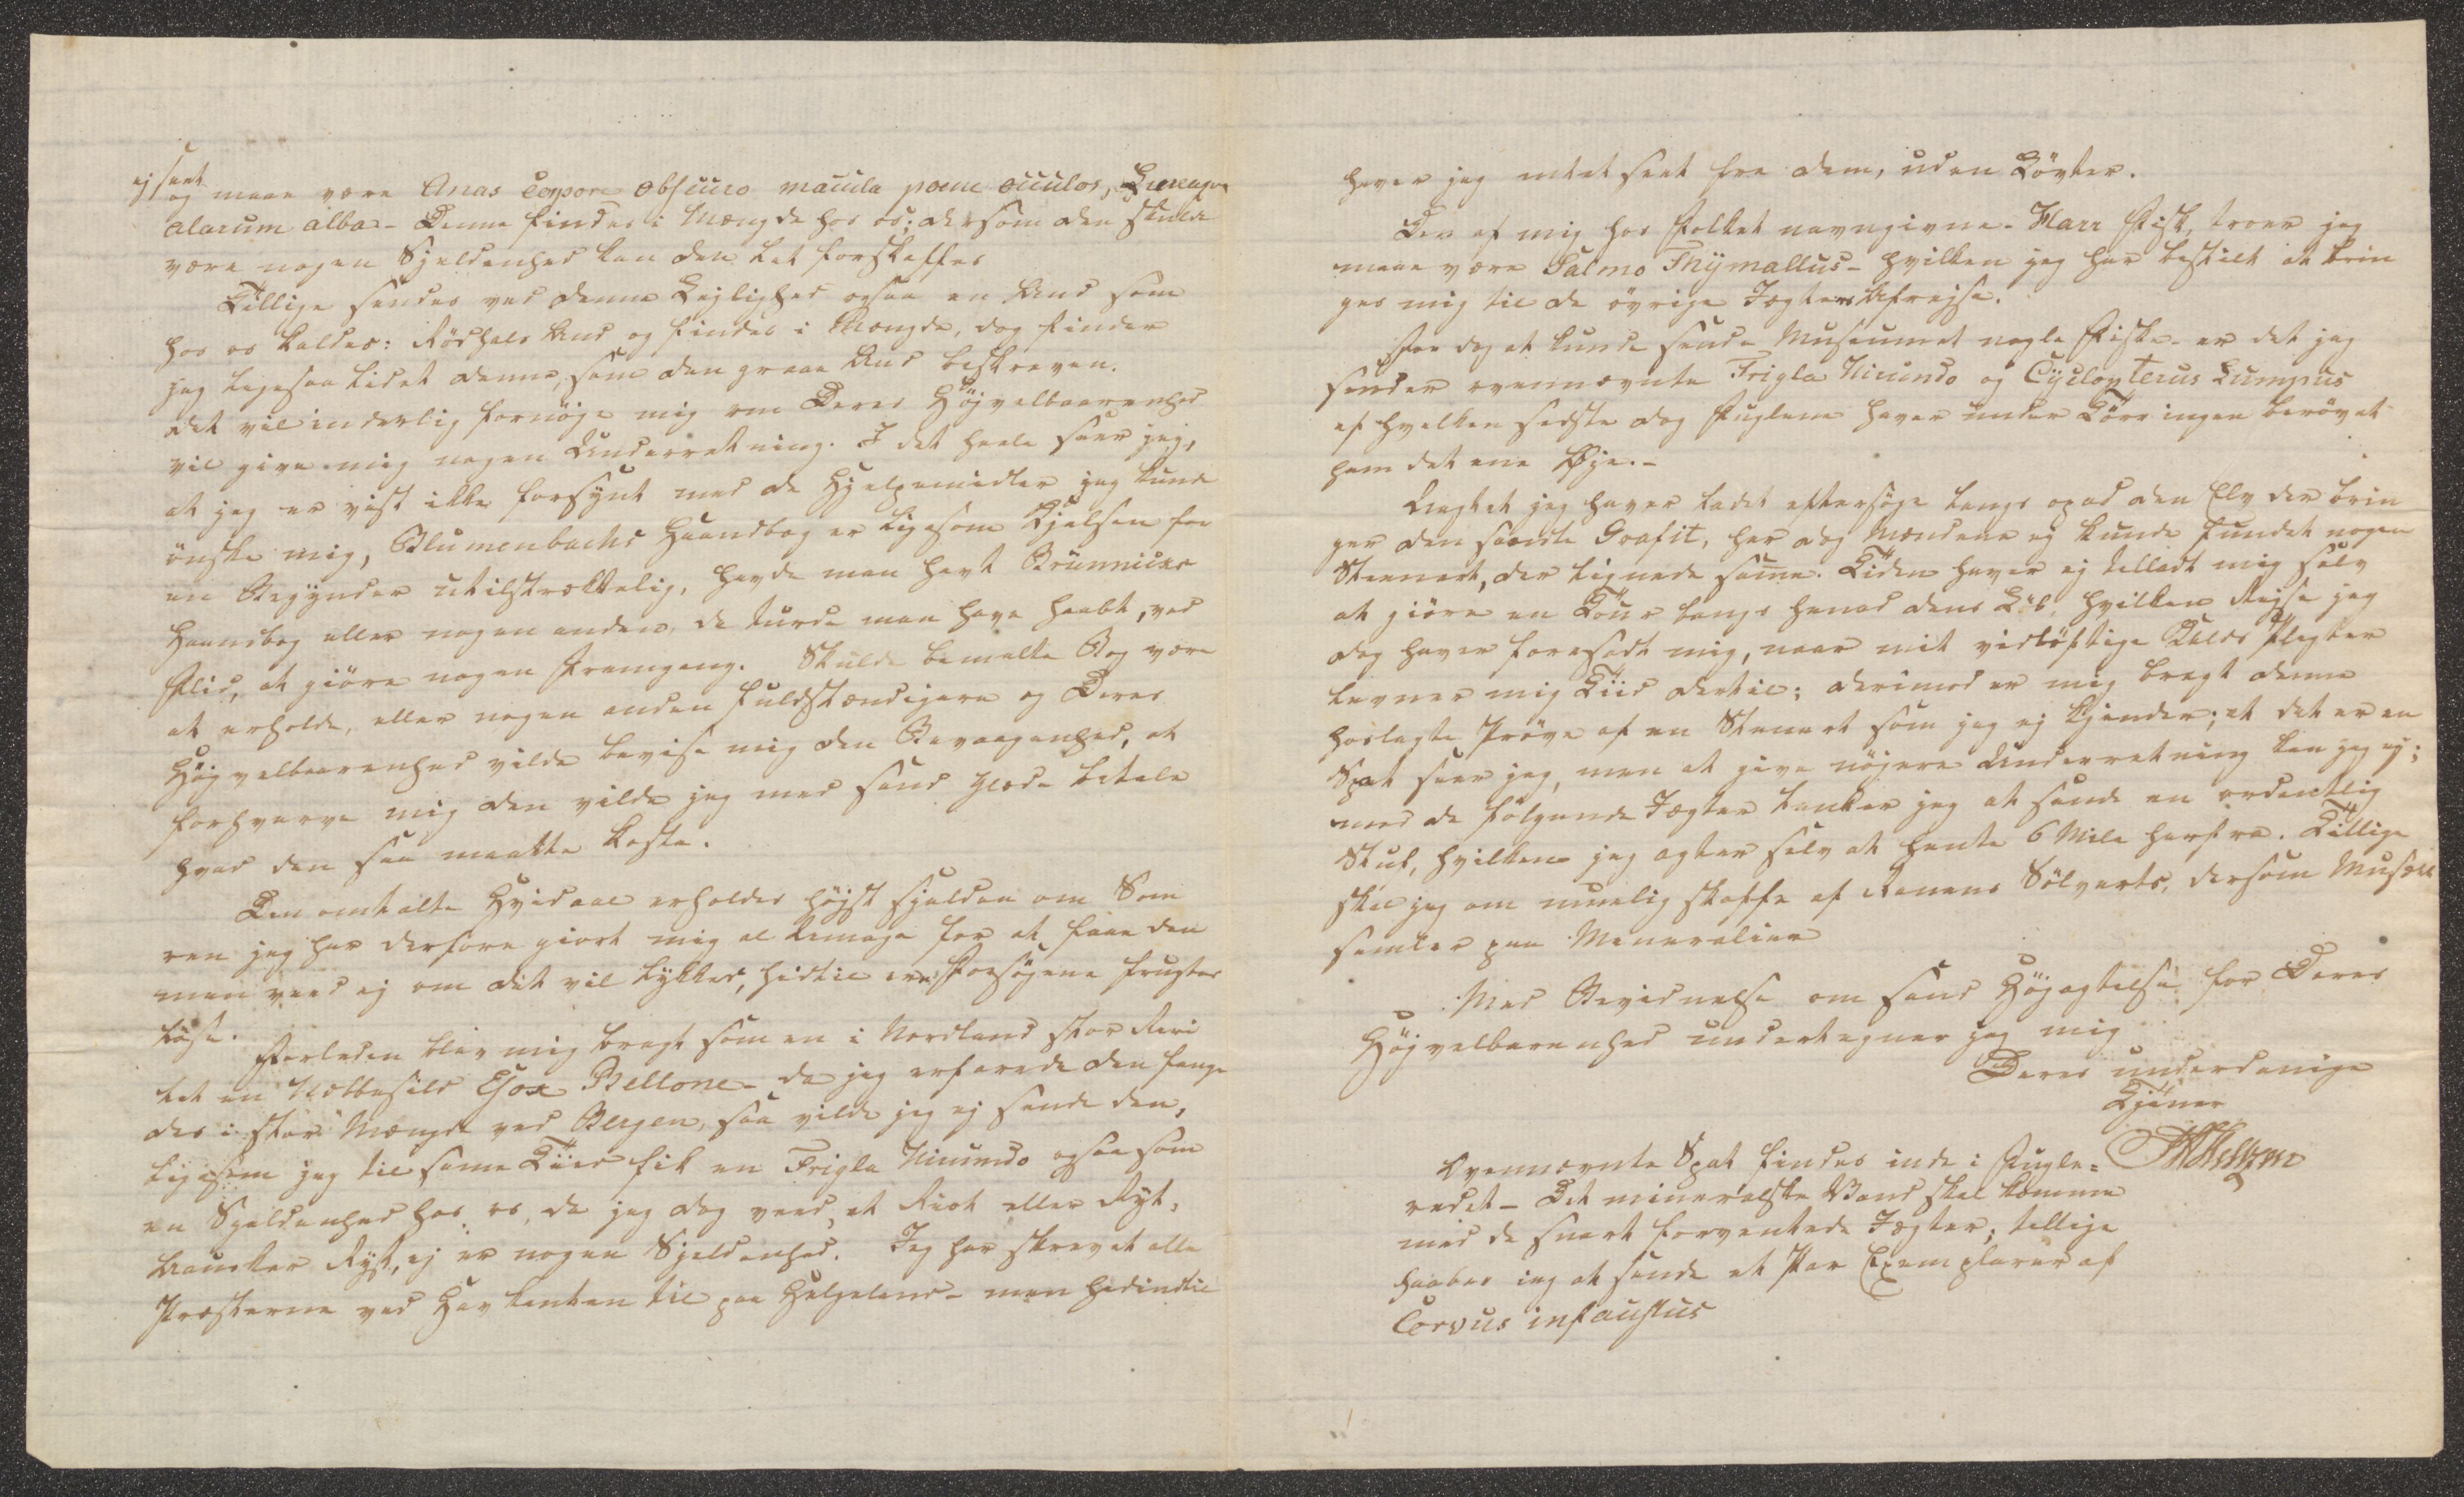 ej sant
og maae være Anas Corpore obscuro macula pone occulos, Lineaqve
alarum alba - Denne findes i Mængde hos os; dersom den skulde
være nogen Sjeldenhed kan den let forskaffes
Tillige sendes ved denne Lejlighed ogsaa en And som
hos os kaldes: Rödhals And og findes i Mængde, dog finder
jeg ligesaa lidet denne, som den graae And beskreven.
det vil inderlig fornöje mig om Deres Höjvelbaarenhed
vil give mig nogen Underretning. I det heele seer jeg,
at jeg er vist ikke forsynt med de Hjelpemidler jeg kunde
önske mig, Blumenbachs Haandbog er ligesom Kjelsen for
en Begynder utilstrækkelig, havde man havt Brünnichs
Haandbog eller nogen anden, da turde man have haabt, ved
Flid, at giöre nogen Fremgang. Skulde bemelte Bog være
at erholde, eller nogen anden fuldstændigere og Deres
Höjvelbaarenhed vilde bevise mig den Bevaagenhed, at
forhverve mig den vilde jeg med sand Glæde betale
hvad den saa maatte koste.
Den omtalte Hvidaal erholdes höjst sjelden om Som
ren jeg har derfore giort mig al Umage for at faae den
men veed ej om det vil lykkes, hidtil ere Forsögene frugtes
löse.
Forleden blev mig bragt som en i Nordland stor Rari
tet en Næbbesild Esox Bellone - da jeg erfarede den fange
des i stor Mængde ved Bergen, saa vilde jeg ej sende den,
ligesom jeg til samme Tiid fik en Trigla Hirundo ogsaa som
en Sjeldenhed hos os, da jeg dog veed, at Riot eller Ryt,
Knurker Ryt, ej er nogen Sjeldenhed. Jeg har skrevet alle
Præsterne ved Havkanten til paa Helgeland - men hidindtil
haver jeg intet seet fra dem, uden Lövter.
Den af mig hos Folket navngivne - Harr Fisk, troer jeg
maae være Salmo Thymallus - hvilken jeg har bestilt at brin
ges mig til de övrige Jægters Afrejse.
For dog at kunde sende Museumet nogle Fiske - er det jeg
sender ovennævnte Trigla Hirundo og Cyclopterus Lumpus
af hvilken sidste dog Fuglene haver under Törringen berövet
ham det ene Øje. -
Uagtet jeg haver ladet eftersöge langs opad den Elv der brin
ger den sændte Grafit, har dog Mændene ej kunde fundet nogen
Steenart, der lignede samme. Tiden haver ej tilladt mig selv
at giöre en Tour langs henad dens Löb, hvilken Rejse jeg
dog haver foresadt mig, naar mit vidtløftige Kalds Pligter
levner mig Tiid dertil; derimod er mig bragt denne
hoslagte Pröve af en Steenart som jeg ej kjender; at det er en
Spat seer jeg, men at give nöjere Underretning kan jeg ej;
med de fölgende Jægter tænker jeg at sende en ordentlig
Stuf, hvilken jeg agter selv at hente 6 Mile herfra. Tillige
skal jeg om muelig skaffe af Ranens Sölverts, dersom Musæet
samler paa Meneralier
Med Bevidnelse om sand Höjagtelse for Deres
Höjvelbarenhed undertegner jeg mig
Deres underdanige
Tjener
Heltzen
Ovennævnte Spat findes inde i Fugle=
redet - Det mineralske Vand skal komme
med de snart forventede Jægter; tillige
haaber jeg at sende et Par Exemplarer af
Corvus infaustus